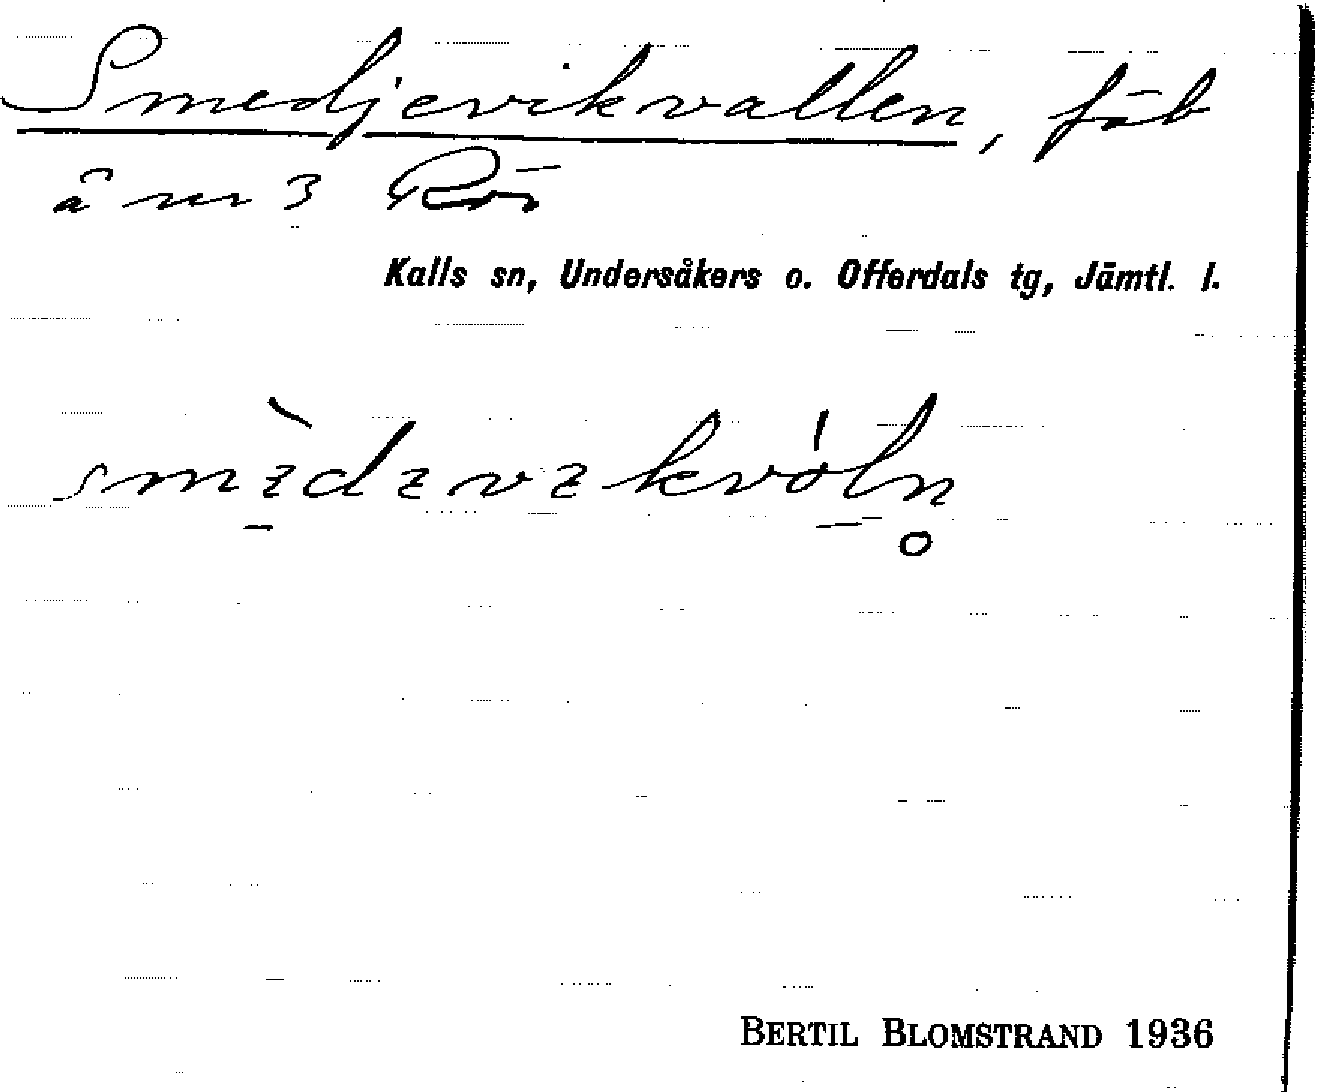 Smedjevikvallen, fäb
å nr 3 Rör
Kalls sn, Undersåkers o. Offerdals tg, Jämtl. l.
BERTIL BLOMSTRAND 1936